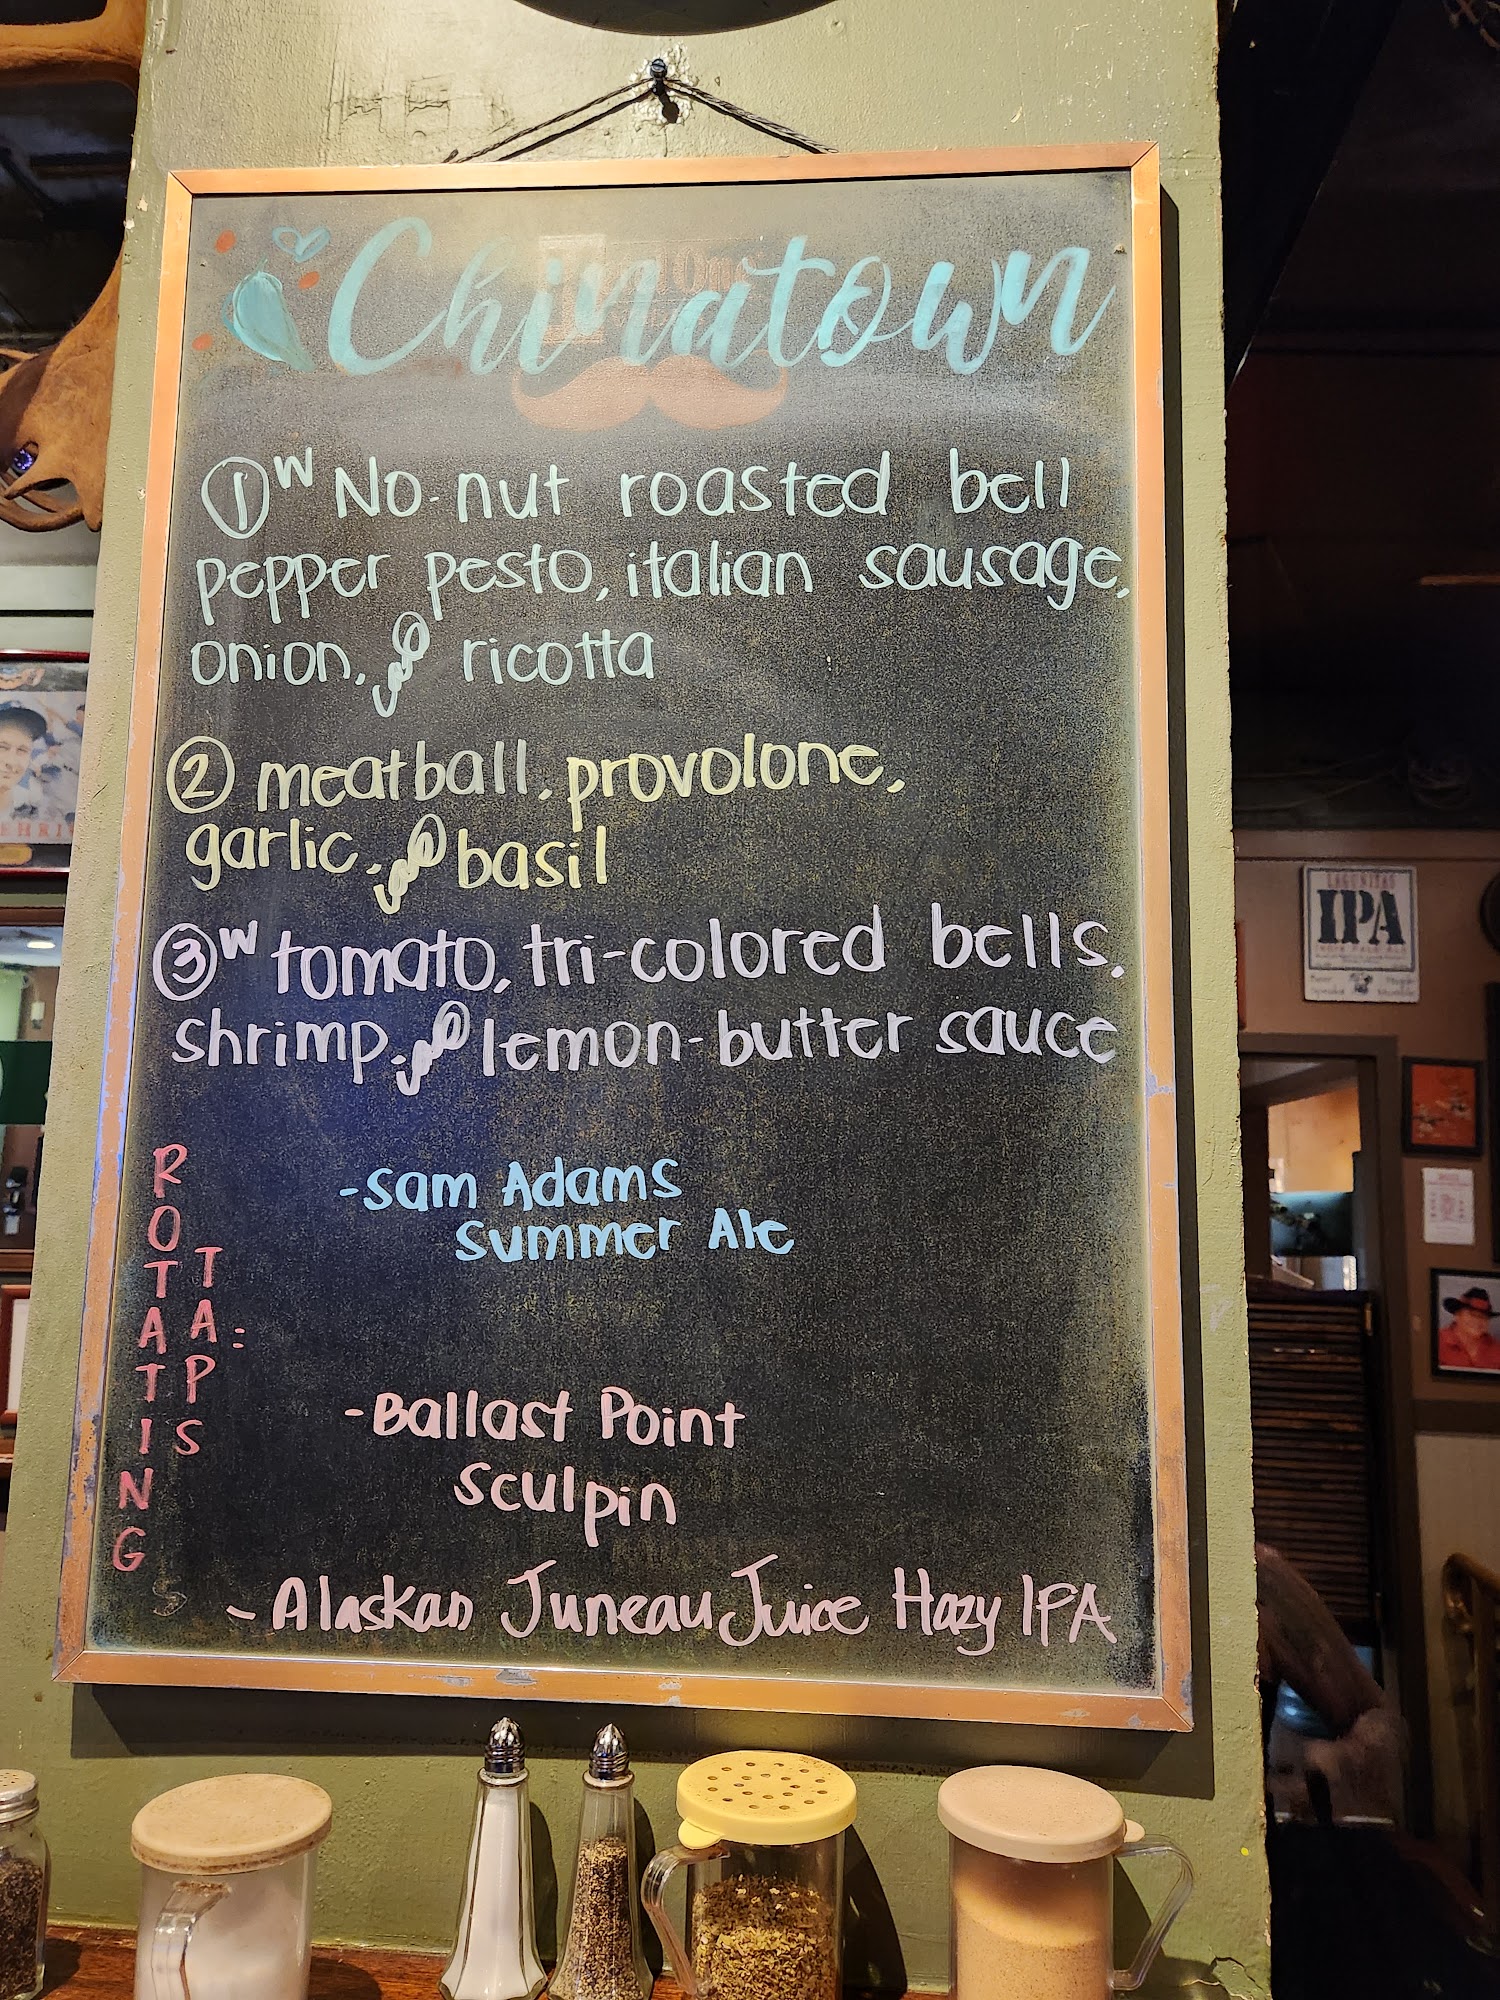 Chinatown
① W No-nut roasted bell
pepper pesto, italian sausage,
onion, ricotta
② meatball, provolone,
garlic, basil
③ W tomato, tri-colored bells,
shrimp, lemon-butter sauce
ROTATING
TAPS:
-Sam Adams
Summer Ale
-Ballast Point
Sculpin
- Alaskan Juneau Juice Hazy IPA
LAGUNITAS
IPA